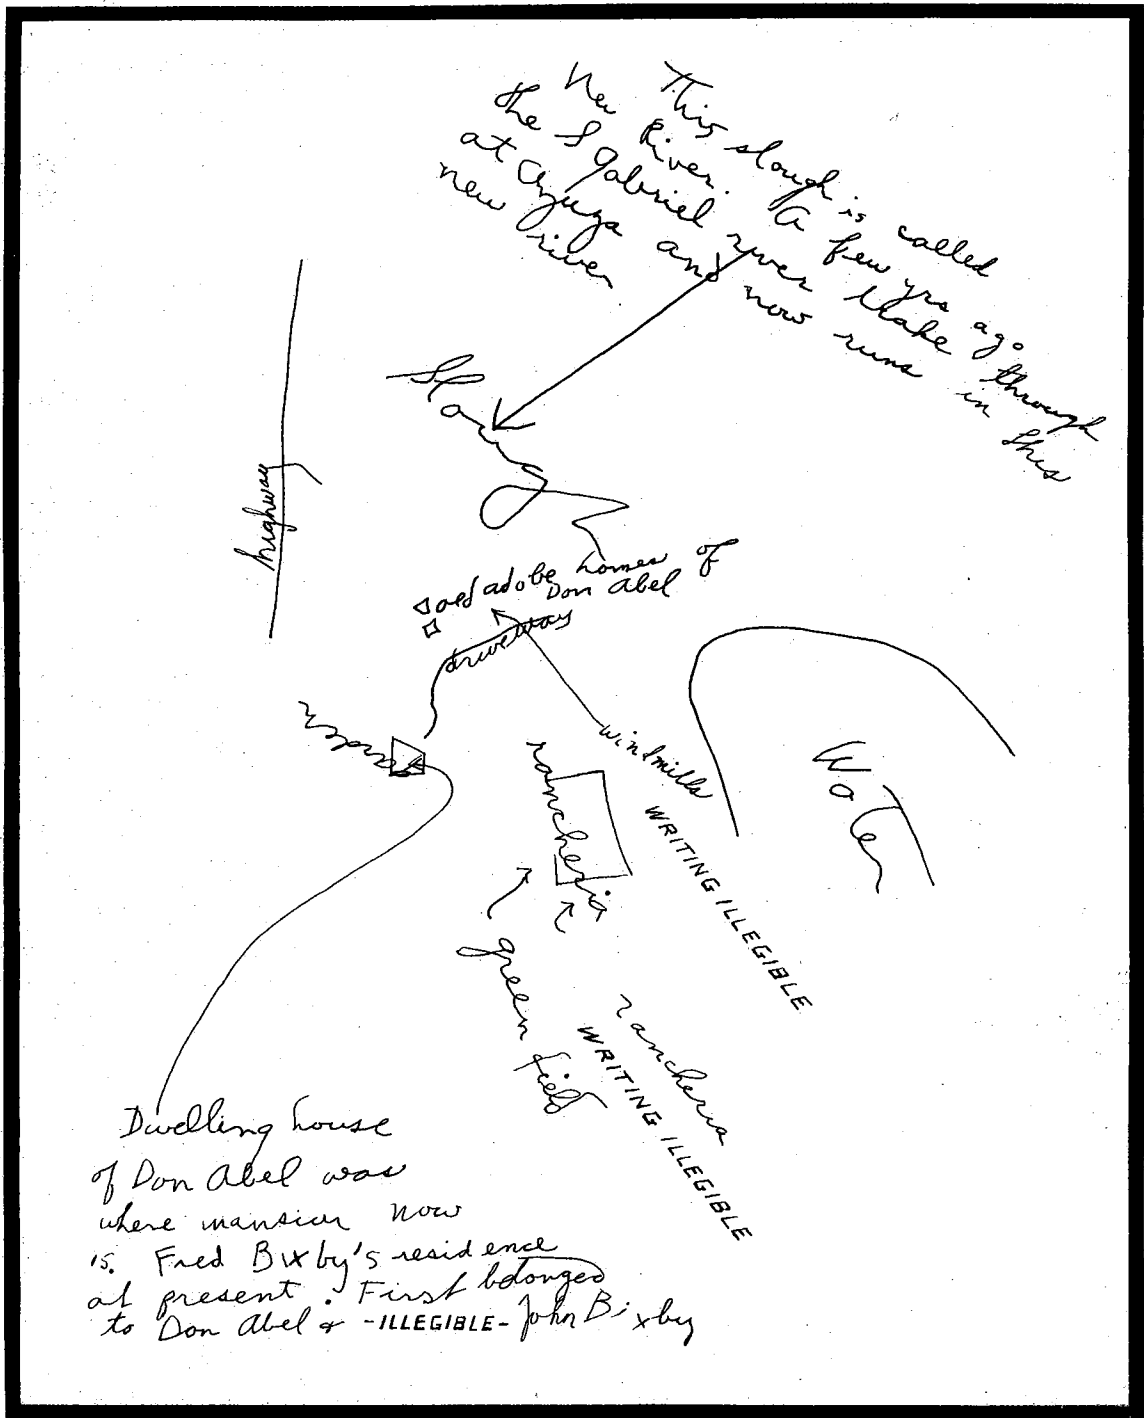 This slough is called
New River. A few yrs ago
the S Gabriel river brake through
at Azuza and now runs in this
new river
Slough
highway
old adobe homes of
Don Abel
driveway
windmills
garden
rancheria
WRITING ILLEGIBLE
Water
green field
rancheria
WRITING ILLEGIBLE
Dwelling house
of Don Abel was
where mansion now
is. Fred Bixby's residence
at present. First belonged
to Don Abel & -ILLEGIBLE- John Bixby